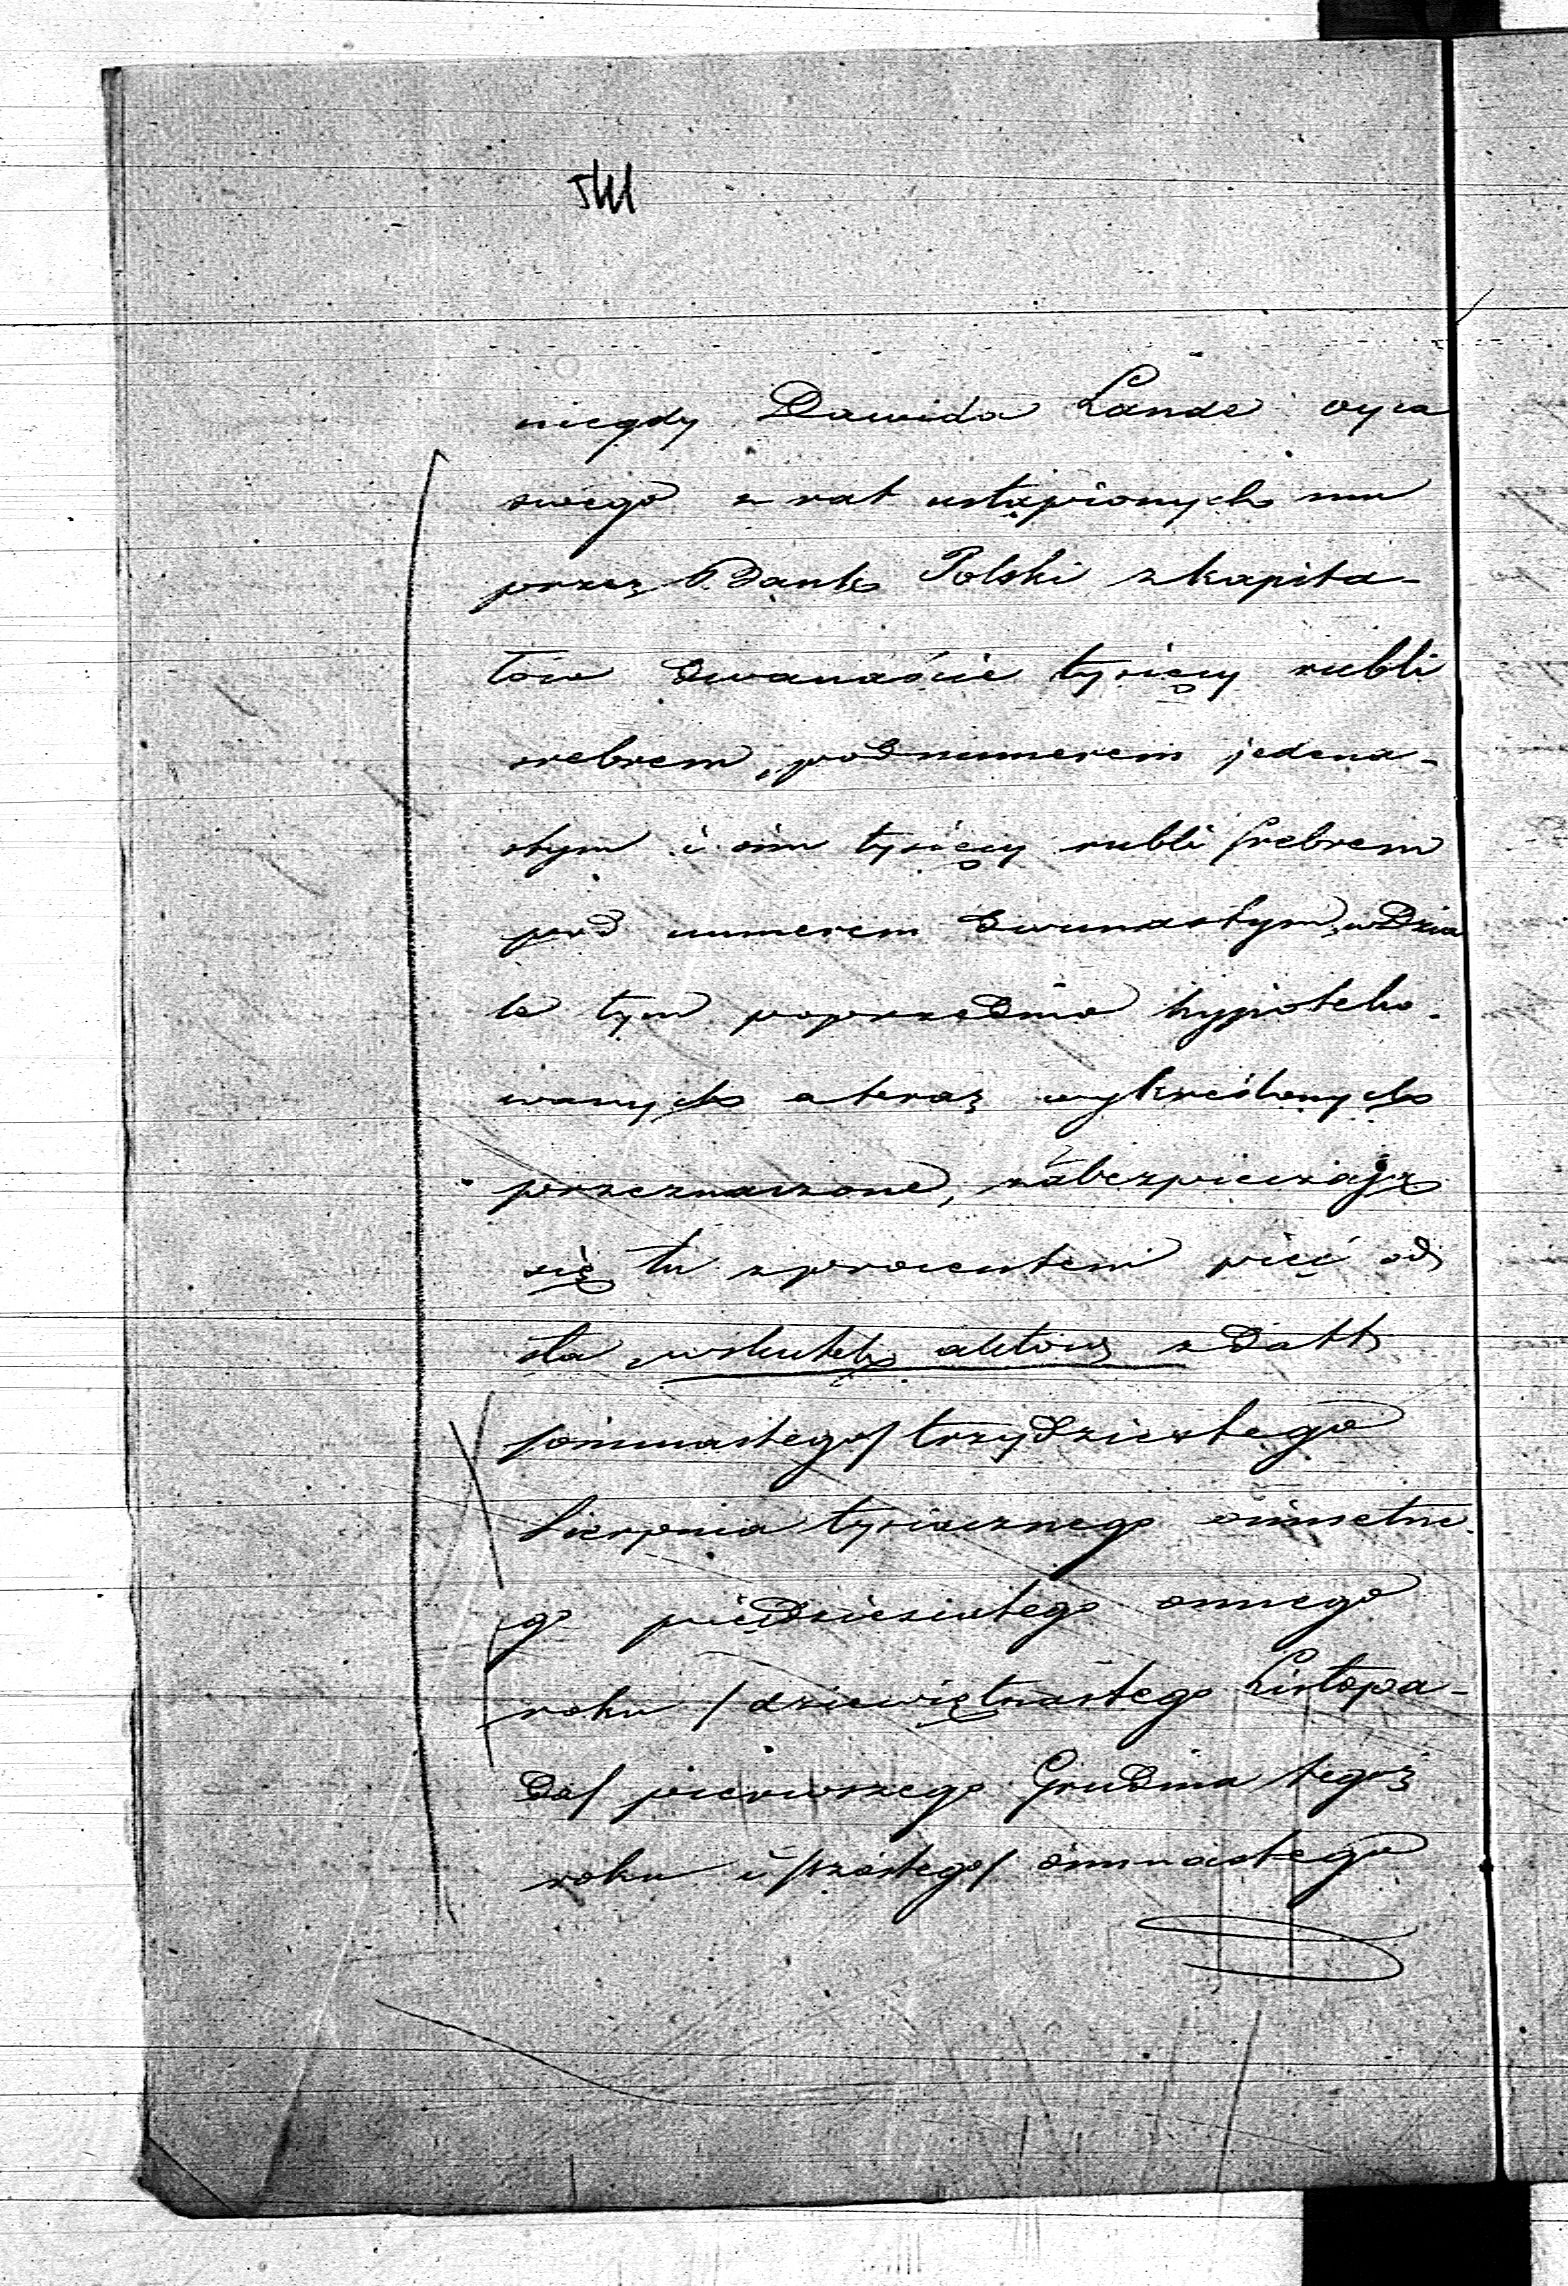 niegdy Dawida Lande ojca
swego z rat ustąpionych mu
przez Bank Polski z kapita-
łów dwanaście tysięcy rubli
srebrem, pod numerem jedena-
stym i óśm tysięcy rubli srebrem
pod numerem dwunastym, w Dzia
le tym poprzednio hypoteko-
wanych a teraz wykreślonych
przeznaczone, zabezpieczają
się tu z procentem pięć od
sta wskutek aktów z datt
/ośmnastego/ trzydziestego
Sierpnia tysiącznego ośmsetne-
go pięćdziesiątego ósmego
roku / dziewiętnastego Listopa-
da/ pierwszego Grudnia tegoż
roku i /szóstego/ ośmnastego